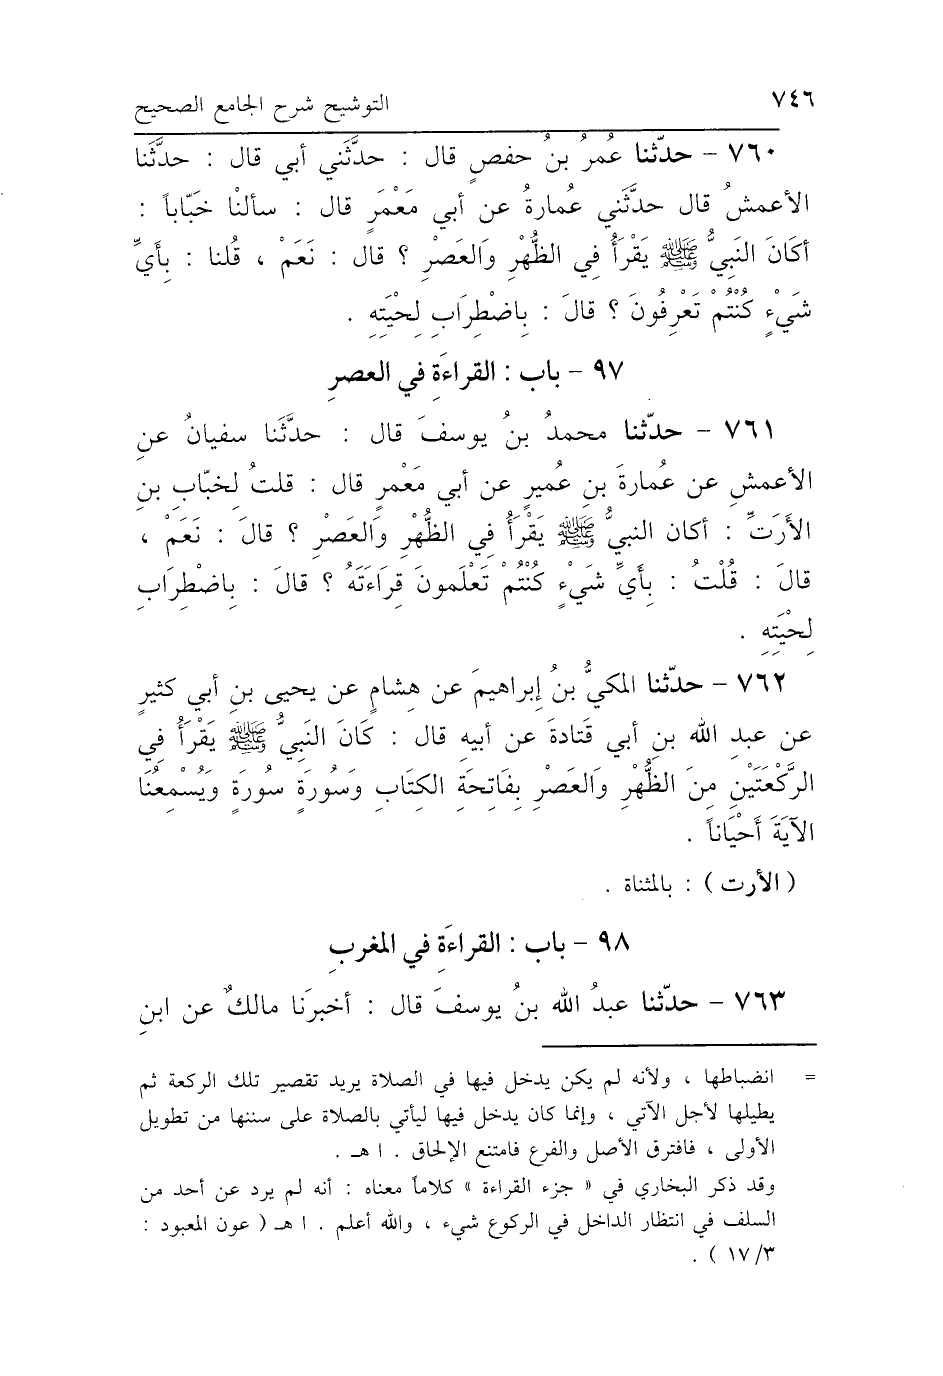 ٧٤٦ التوشيح شرح الجامع الصحيح
٧٦٠ – حدّثنا عُمرُ بنُ حفصٍ قال : حدَّثَني أبي قال : حدَّثَنا
الأعمشُ قال حدَّثَني عُمارةُ عن أبي مَعْمَرٍ قال : سألنْا خَبّاباً :
أكَانَ النَبيُّ ﷺ يَقْرَأُ فِي الظُّهْرِ وَالعَصْرِ ؟ قال : نَعَمْ ، قُلنا : بِأَيِّ
شَيْءٍ كُنْتُمْ تَعْرِفُونَ ؟ قالَ : بِاضْطِرَابِ لِحْيَتِهِ .
٩٧ – باب : القراءَةِ في العصرِ
٧٦١ – حدّثنا محمدُ بنُ يوسفَ قال : حدَّثَنا سفيانُ عنِ
الأعمشِ عن عُمارةَ بنِ عُميرٍ عن أبي مَعْمَرٍ قال : قلتُ لخبّابِ بنِ
الأَرَتِّ : أكان النبيُّ ﷺ يَقْرَأُ فِي الظُّهْرِ وَالعَصْرِ ؟ قالَ : نَعَمْ ،
قالَ : قُلْتُ : بِأَيِّ شَيْءٍ كُنْتُمْ تَعْلَمونَ قِرَاءَتَهُ ؟ قالَ : بِاضْطِرَابِ
لِحْيَتِهِ .
٧٦٢ – حدّثنا المكيُّ بنُ إبراهيمَ عن هِشامٍ عن يحيى بنِ أبي كثيرٍ
عن عبدِ الله بنِ أبي قَتادةَ عن أبيه قال : كَانَ النَبيُّ ﷺ يَقْرَأُ فِي
الرَّكْعَتَيْنِ مِنَ الظُّهْرِ وَالعَصْرِ بِفَاتِحَةِ الكِتَابِ وَسُورَةٍ سُورَةٍ وَيُسْمِعُنَا
الآيَةَ أَحْيَاناً .
( الأرت ) : بالمثناة .
٩٨ – باب : القراءَةِ في المغربِ
٧٦٣ – حدّثنا عبدُ الله بنُ يوسفَ قال : أخبرَنا مالكٌ عن ابنِ
= انضباطها ، ولأنه لم يكن يدخل فيها في الصلاة يريد تقصير تلك الركعة ثم
يطيلها لأجل الآتي ، وإنما كان يدخل فيها ليأتي بالصلاة على سننها من تطويل
الأولى ، فافترق الأصل والفرع فامتنع الإلحاق . ا هـ .
وقد ذكر البخاري في « جزء القراءة » كلاماً معناه : أنه لم يرد عن أحد من
السلف في انتظار الداخل في الركوع شيء ، والله أعلم . ا هـ ( عون المعبود :
٣/ ١٧ ) .